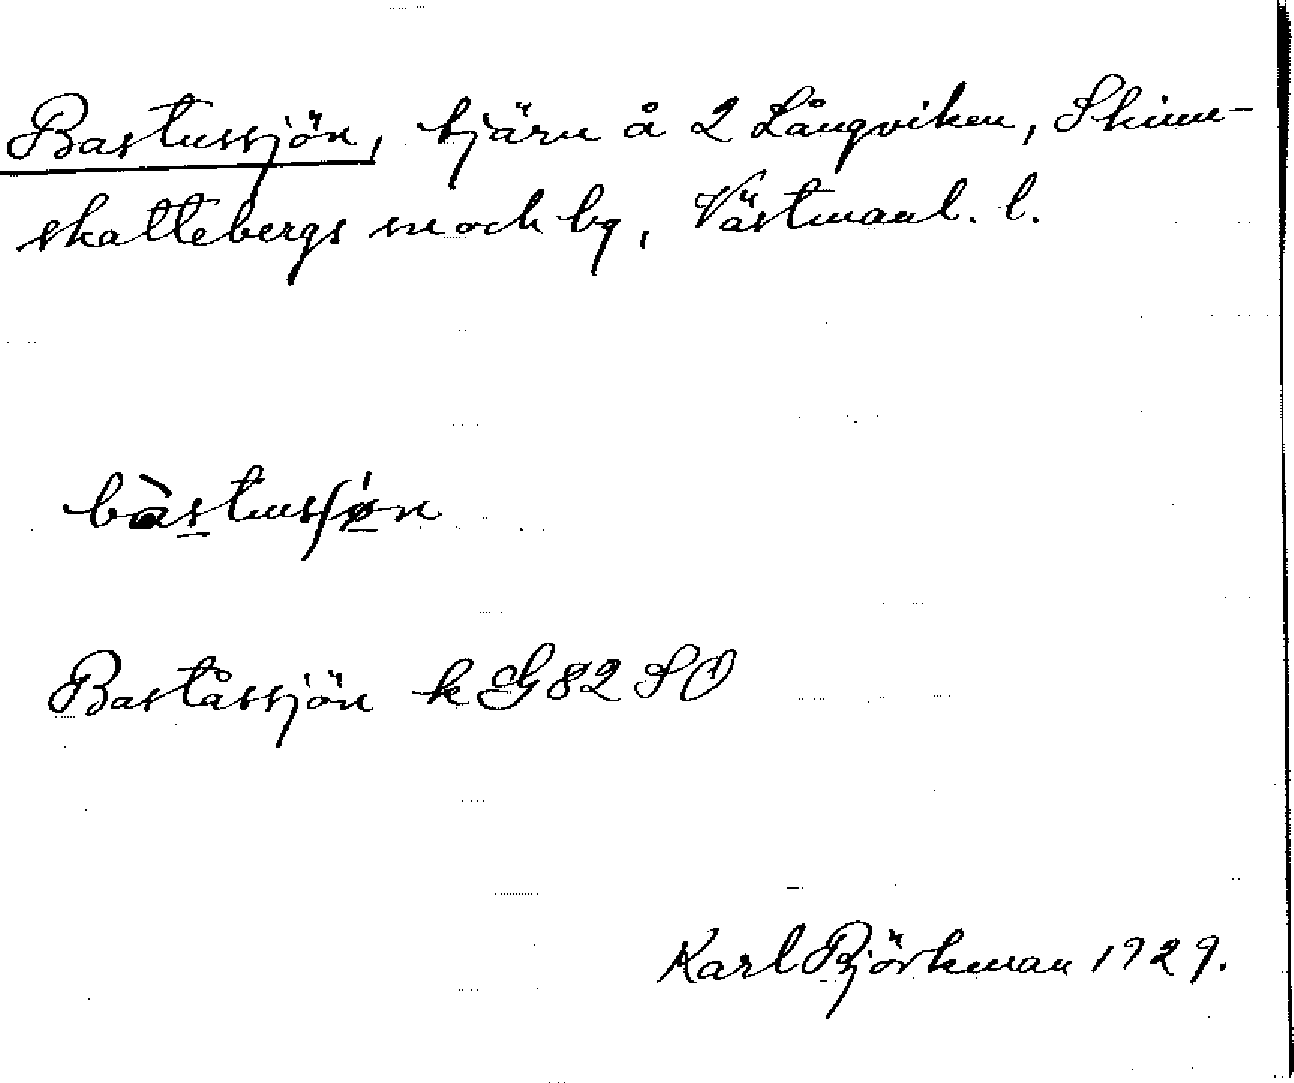 Bastussjön, tjärn å 2 Långviken, Skinn-
skattebergs sn och bg, Västmanl. l.
bàstusʃøn
Baståssjön k G 82 SO
Karl Björkman 1929.